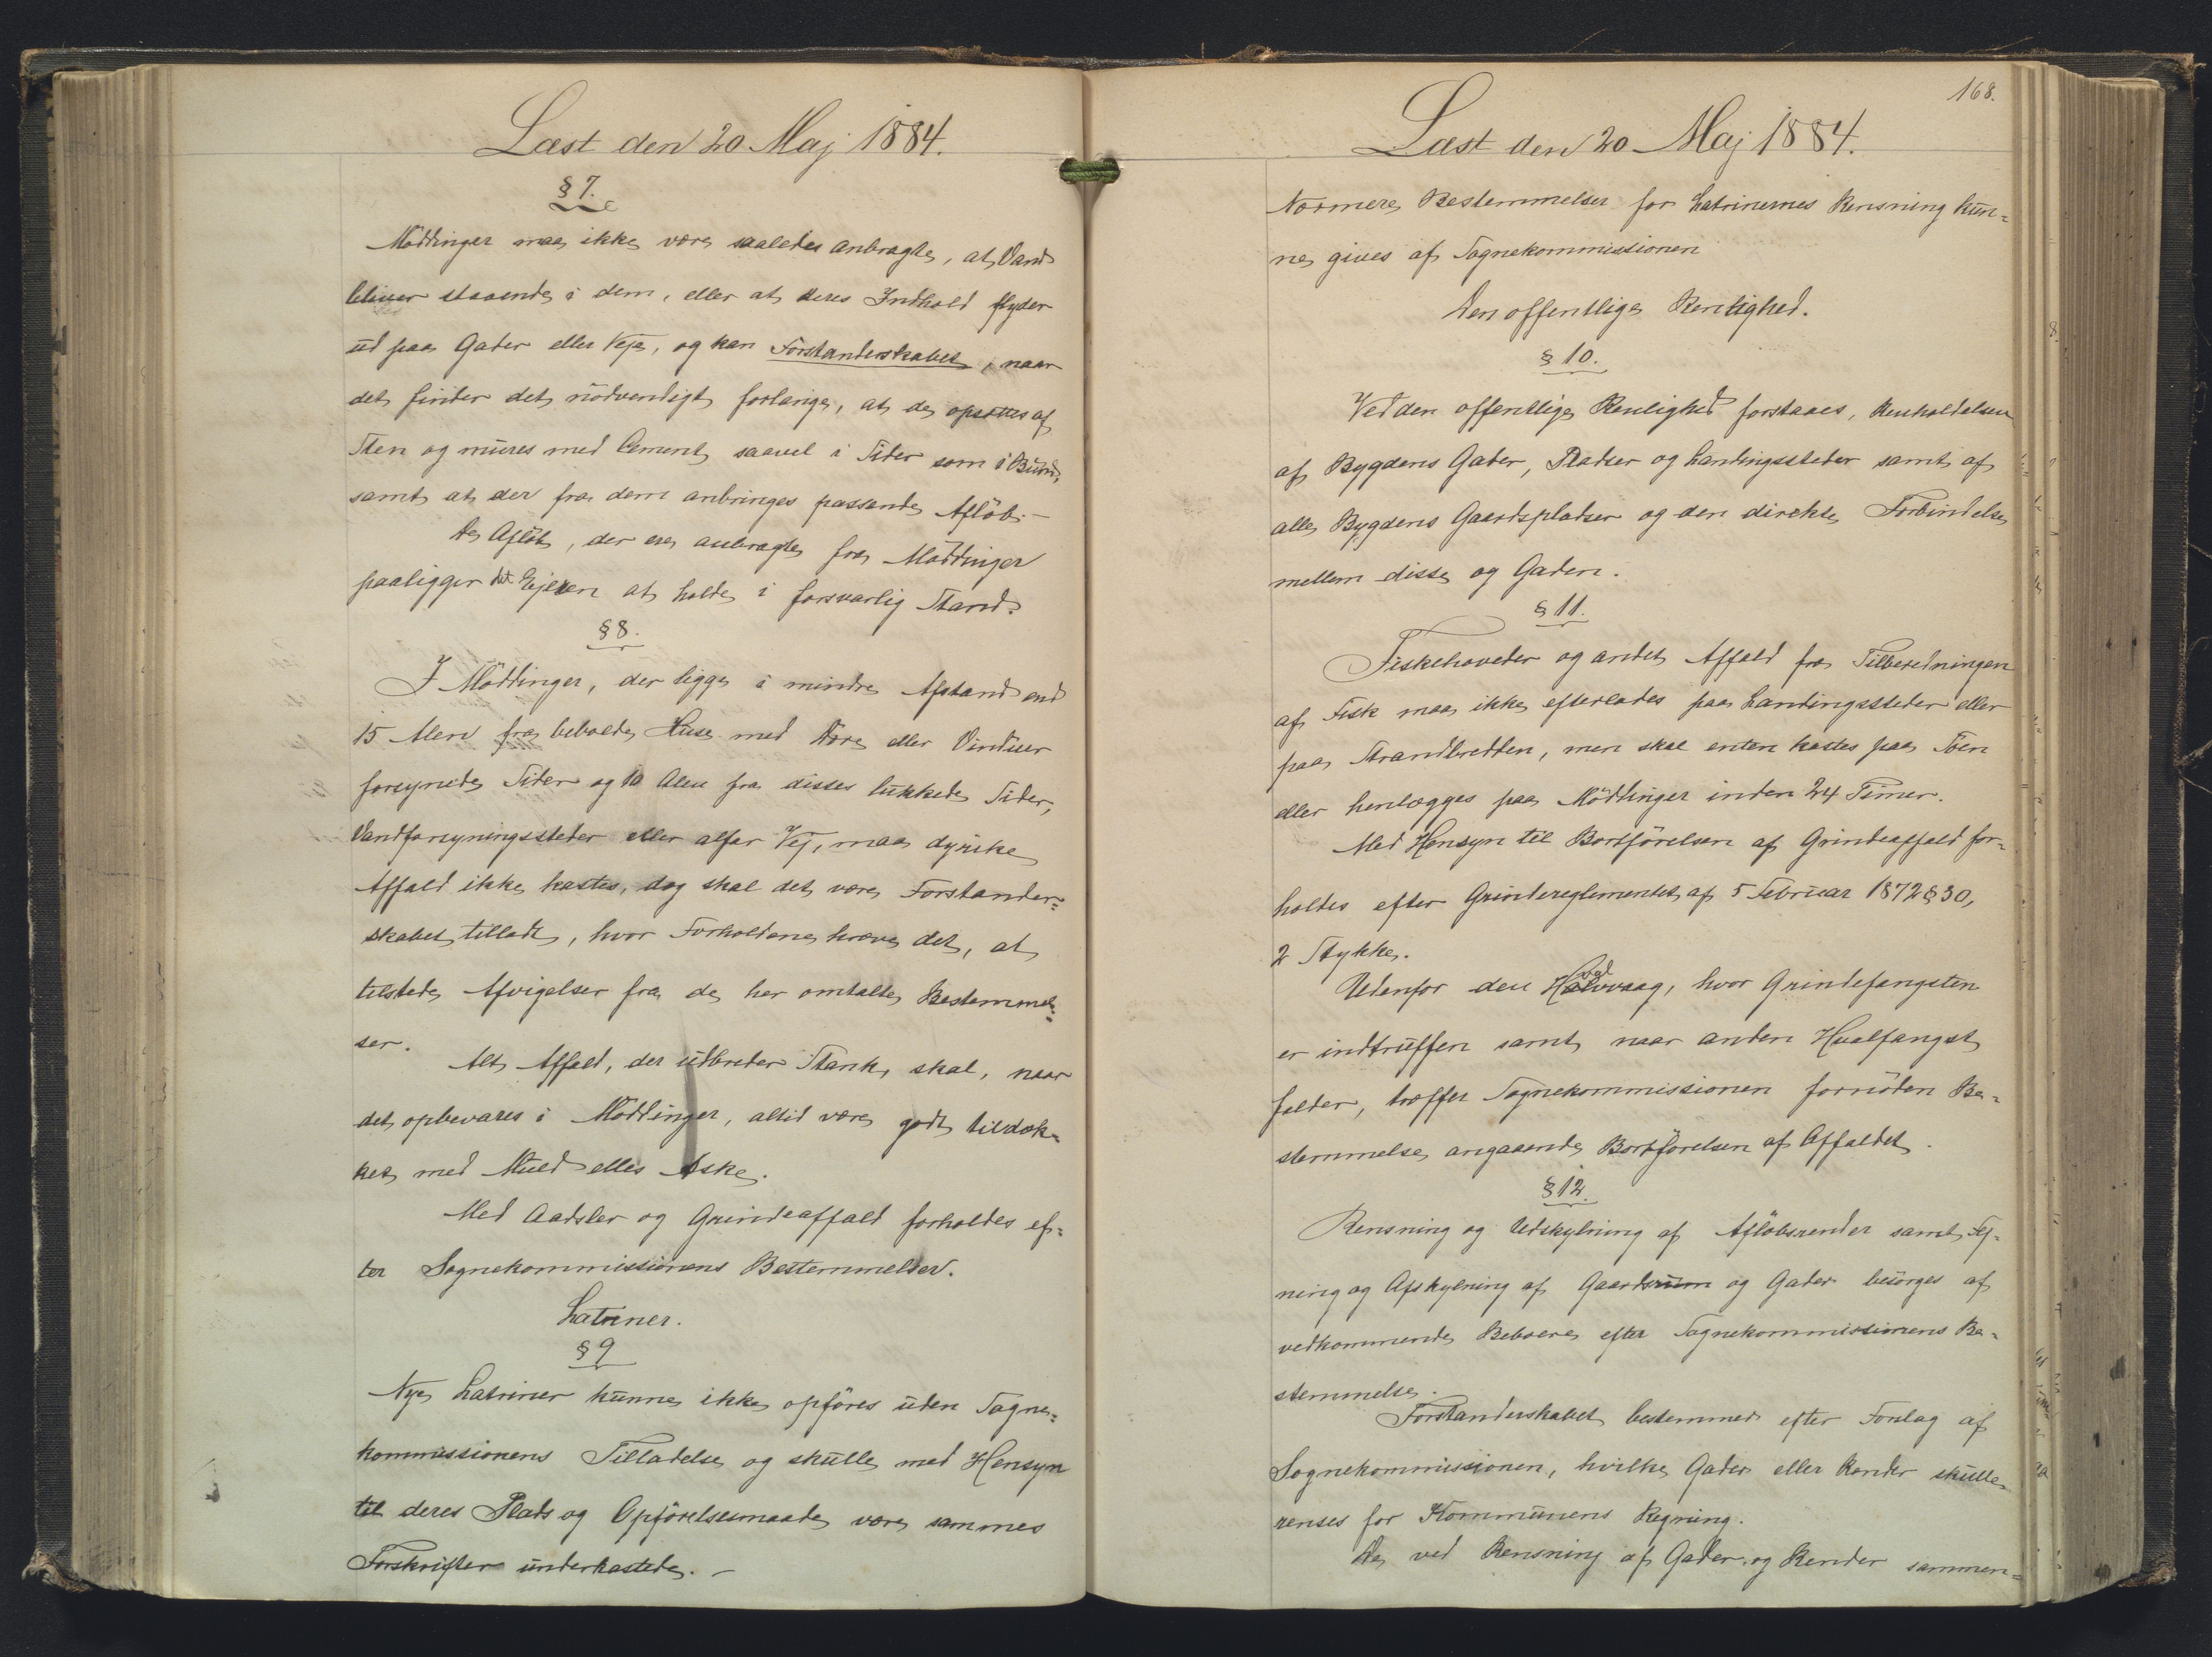 Læst den 20 Maj 1884.
§ 7.
Möddinger maa ikke være saaledes anbragte, at Vand
bliver staaende i dem, eller at deres Indhold flyder
ud paa Gader eller Veje, og kan Forstanderskabet, naar
det finder det nödvendigt forlange, at de opsættes af
Sten og mures med Cement saavel i Sider som i Bund,
samt at der fra dem anbringes passende Aflöb. -
De Aflöb, der ere anbragte fra Möddinger
paaligger det Ejeren at holde i forsvarlig Stand.
§ 8.
I Möddinger, der ligge i mindre Afstand end
15 Alen fra beboede Huse med Döre eller Vinduer
forsynede Sider og 10 Alen fra disses lukkede Sider,
Vandforsyningssteder eller alfar Vej, maa dyriske
Affald ikke kastes, dog skal det være Forstander=
skabet tilladt, hvor Forholdene kræve det, at
tilstede Afvigelser fra de her omtalte Bestemmel=
ser.
Alt Affald, der udbreder Stank, skal, naar
det opbevares i Möddinger, altid være godt tildæk=
ket med Muld eller Aske.
Med Aadsler og Grindeaffald forholdes ef=
ter Sognekommissionens Bestemmelser.
Latriner.
§ 9
Nye Latriner kunne ikke opföres uden Sogne=
kommissionens Tilladelse og skulle med Hensyn
til deres Plads og Opförelsesmaade være sammes
Forskrifter underkastede. -
168.
Læst den 20 Maj 1884.
Nærmere Bestemmelser for Latrinernes Rensning kun=
ne gives af Sognekommissionen
Den offentlige Renlighed.
§ 10.
Ved den offentlige Renlighed forstaaes, Renholdelsen
af Bygdens Gader, Pladser og Landingssteder samt af
alle Bygdens Gaardspladser og den direkte Forbindelse
mellem disse og Gaden.
§ 11.
Fiskehoveder og andet Affald fra Tilberedningen
af Fisk maa ikke efterlades paa Landingssteder eller
paa Strandbredden, men skal enten kastes paa Söen
eller henlægges paa Möddinger inden 24 Timer.
Med Hensyn til Bortförelsen af Grindeaffald for=
holdes efter Grindereglementet af 5 Februar 1872 § 30,
2 Stykke.
Udenfor den Hvalvaag, hvor Grindefangsten
er indtruffen samt naar anden Hvalfangst
falder, træffer Sognekommissionen fornöden Be=
stemmelse angaaende Bortförelsen af Affaldet.
§ 12.
Rensning og Udskylning af Aflöbsrender samt Fej=
ning og Afskylning af Gaardsrum og Gader besörges af
vedkommende Beboere efter Sognekommissionens Be=
stemmelse.
Forstanderskabet bestemmer efter Forslag af
Sognekommissionen, hvilke Gader eller Render skulle
renses for Kommunens Regning.
De ved Rensning af Gader og Render sammen=